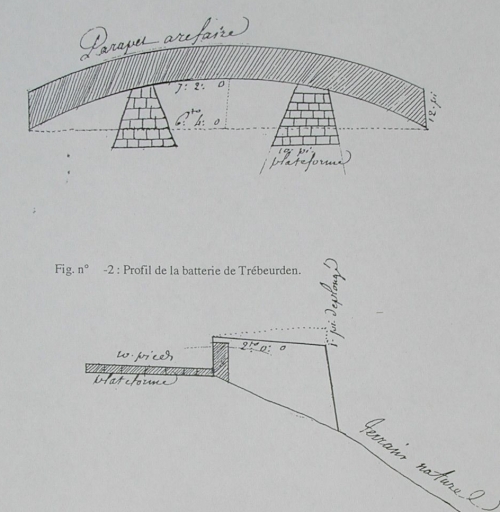 Parapet a refaire
7: 2: 0
6: 4: 0
12. pi
10 pi.
plateforme
Fig. n° -2 : Profil de la batterie de Trébeurden.
1. pi. de plongé
10 pieds
2: 0: 0
plateforme
Terrain naturel